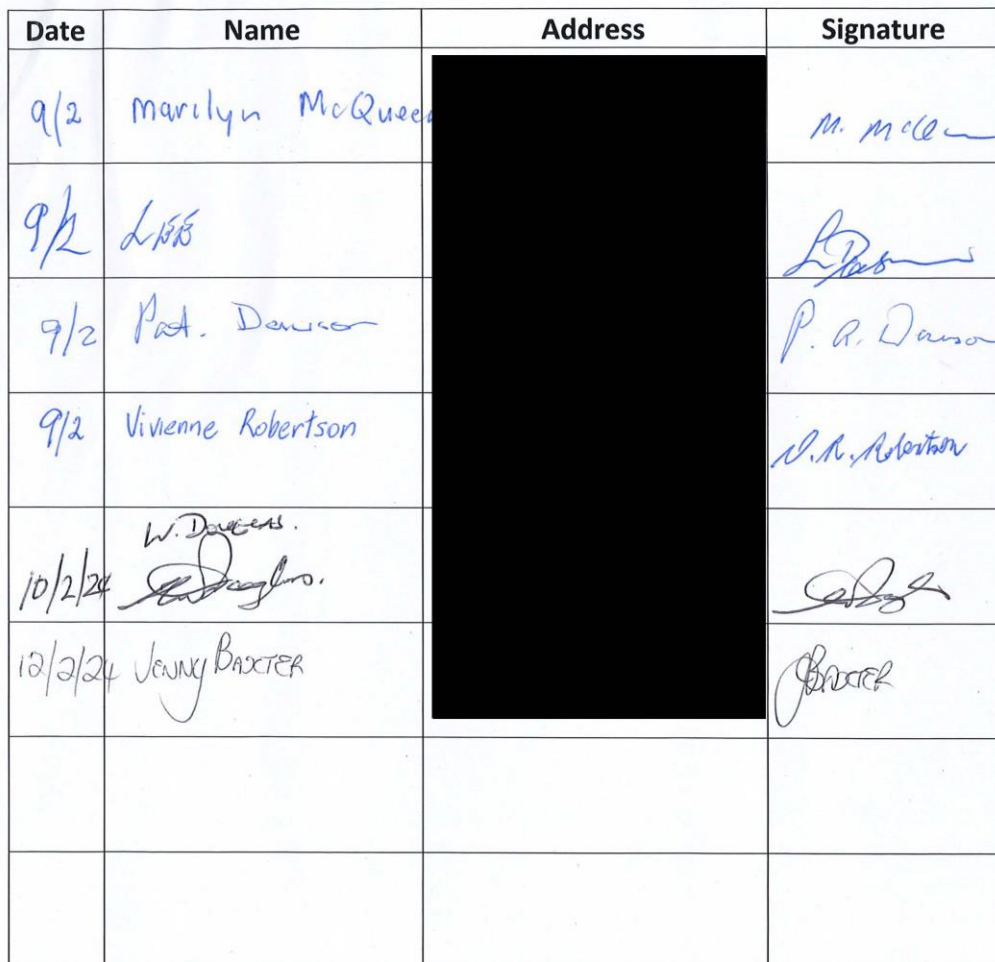 Date Name Address Signature
9/2 Marilyn McQueen M. McQ
9/2 LEE L
9/2 Pat. P. A. Dawson
9/2 Vivienne Robertson V. R. Robertson
W. Douglas.
10/2/24 Douglas.
12/2/24 JENNY BAXTER JBAXTER